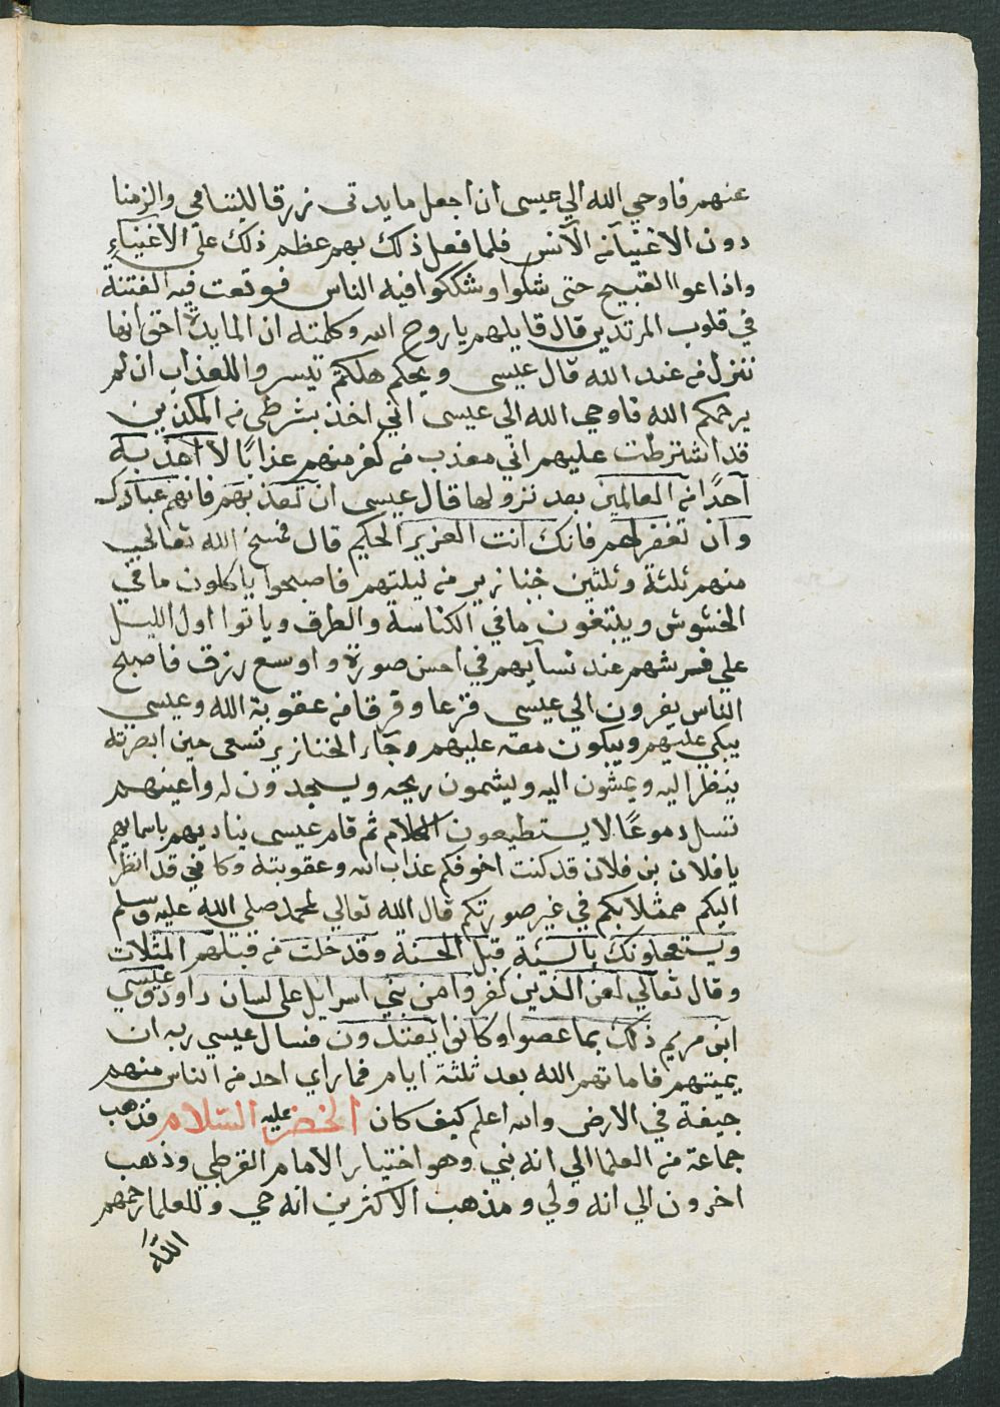 عنهم فاوحي الله الي عيسى ان اجعل مايدتى زرقا لليتامي والزمنا
دون الاغنيآ من الآنس فلما فعل ذلك بهم عظم ذلك على الاغنياءِ
واذاعوا القبيح حتى شكوا وشككوا فيه الناس فوقعت فيه الفتنة
في قلوب المرتدين قال قايلهم يا روح الله وكلمته ان المايدة احق انها
تنزل من عند الله قال عيسى ويحكم هلكتم تيسروا للعذاب ان لم
يرحمكم الله فاوحي الله الي عيسى اني اخذ بشرطى من المكذبين
قد اشترطت عليهم اني معذب من كفر منهم عذابًا لا اعذبه
آحدًا من العالمين بعد نزولها قال عيسى ان تعذبهم فانهم عبادك
وان تغفر لهم فانك انت العزيز الحكيم قال فمسخ الله تعالي
منهم ثلثة وثلثين خنازير من ليلتهم فاصبحوا ياكلون ما في
الخشوش ويبتغون ما في الكناسة والطرف وباتوا اول الليل
علي فرشهم عند نسآيهم في احسن صورة واوسع رزق فاصبح
الناس يفرون الي عيسى فزعا وفرقا من عقوبة الله وعيسي
يبكي عليهم ويبكون معه عليهم وجاء الخنازير تسعى حين ابصرته
ينظر اليه ويمشون اليه ويشمون ريحه ويسجدون له واعينهم
تسل دموعًا لا يستطيعون الكلام ثم قام عيسى يناديهم باسمايهم
يا فلان بن فلان قد كنت اخوفكم عذاب الله وعقوبته وكاني قد انظر
اليكم ممثلا بكم في غير صورتكم قال الله تعالي لمحمد صلى الله عليه وسلم
ويستعجلونك بالسيئة قبل الحسنة وقد خلت من قبلهم المثلات
وقال تعالي لعن الذين كفروا من بني اسرايل على لسان داود وعيسي
ابن مريم ذلك بما عصوا وكانوا يعتدون فسال عيسي ربه ان
يميتهم فاماتهم الله بعد ثلثة ايام فما راي احد من الناس منهم
جيفة في الارض والله اعلم كيف كان الخضر عليه السلام فذهب
جماعة من العلما الي انه نبي وهو اختيار الامام القرطبي وذهب
اخرون الي انه ولي ومذهب الاكثرين انه حي وللعلما رحمهم
الله